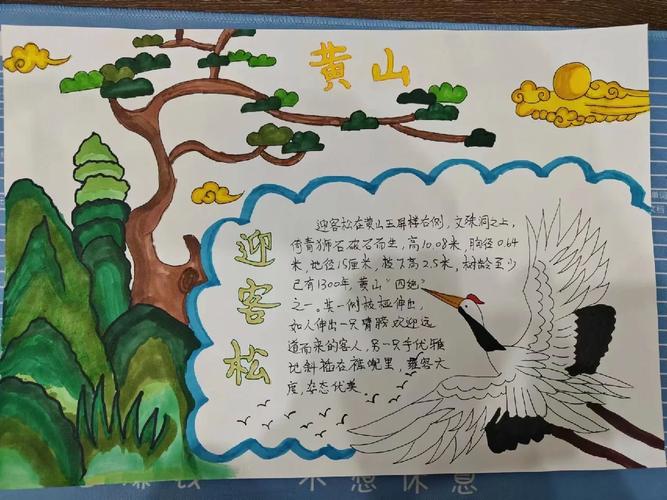 黄山
迎客松
迎客松在黄山玉屏样右侧，文殊洞之上，
倚青狮石破石而生，高10.08米，胸径0.64
米，地径15厘米，枝下高2.5米，树龄至少
已有1300年。黄山“四绝”
之一。其一侧枝桠伸出，
如人伸出一只臂膀欢迎远
道而来的客人，另一只手优雅
地斜插在裤兜里，雍容大
度，姿态优美
不想休息